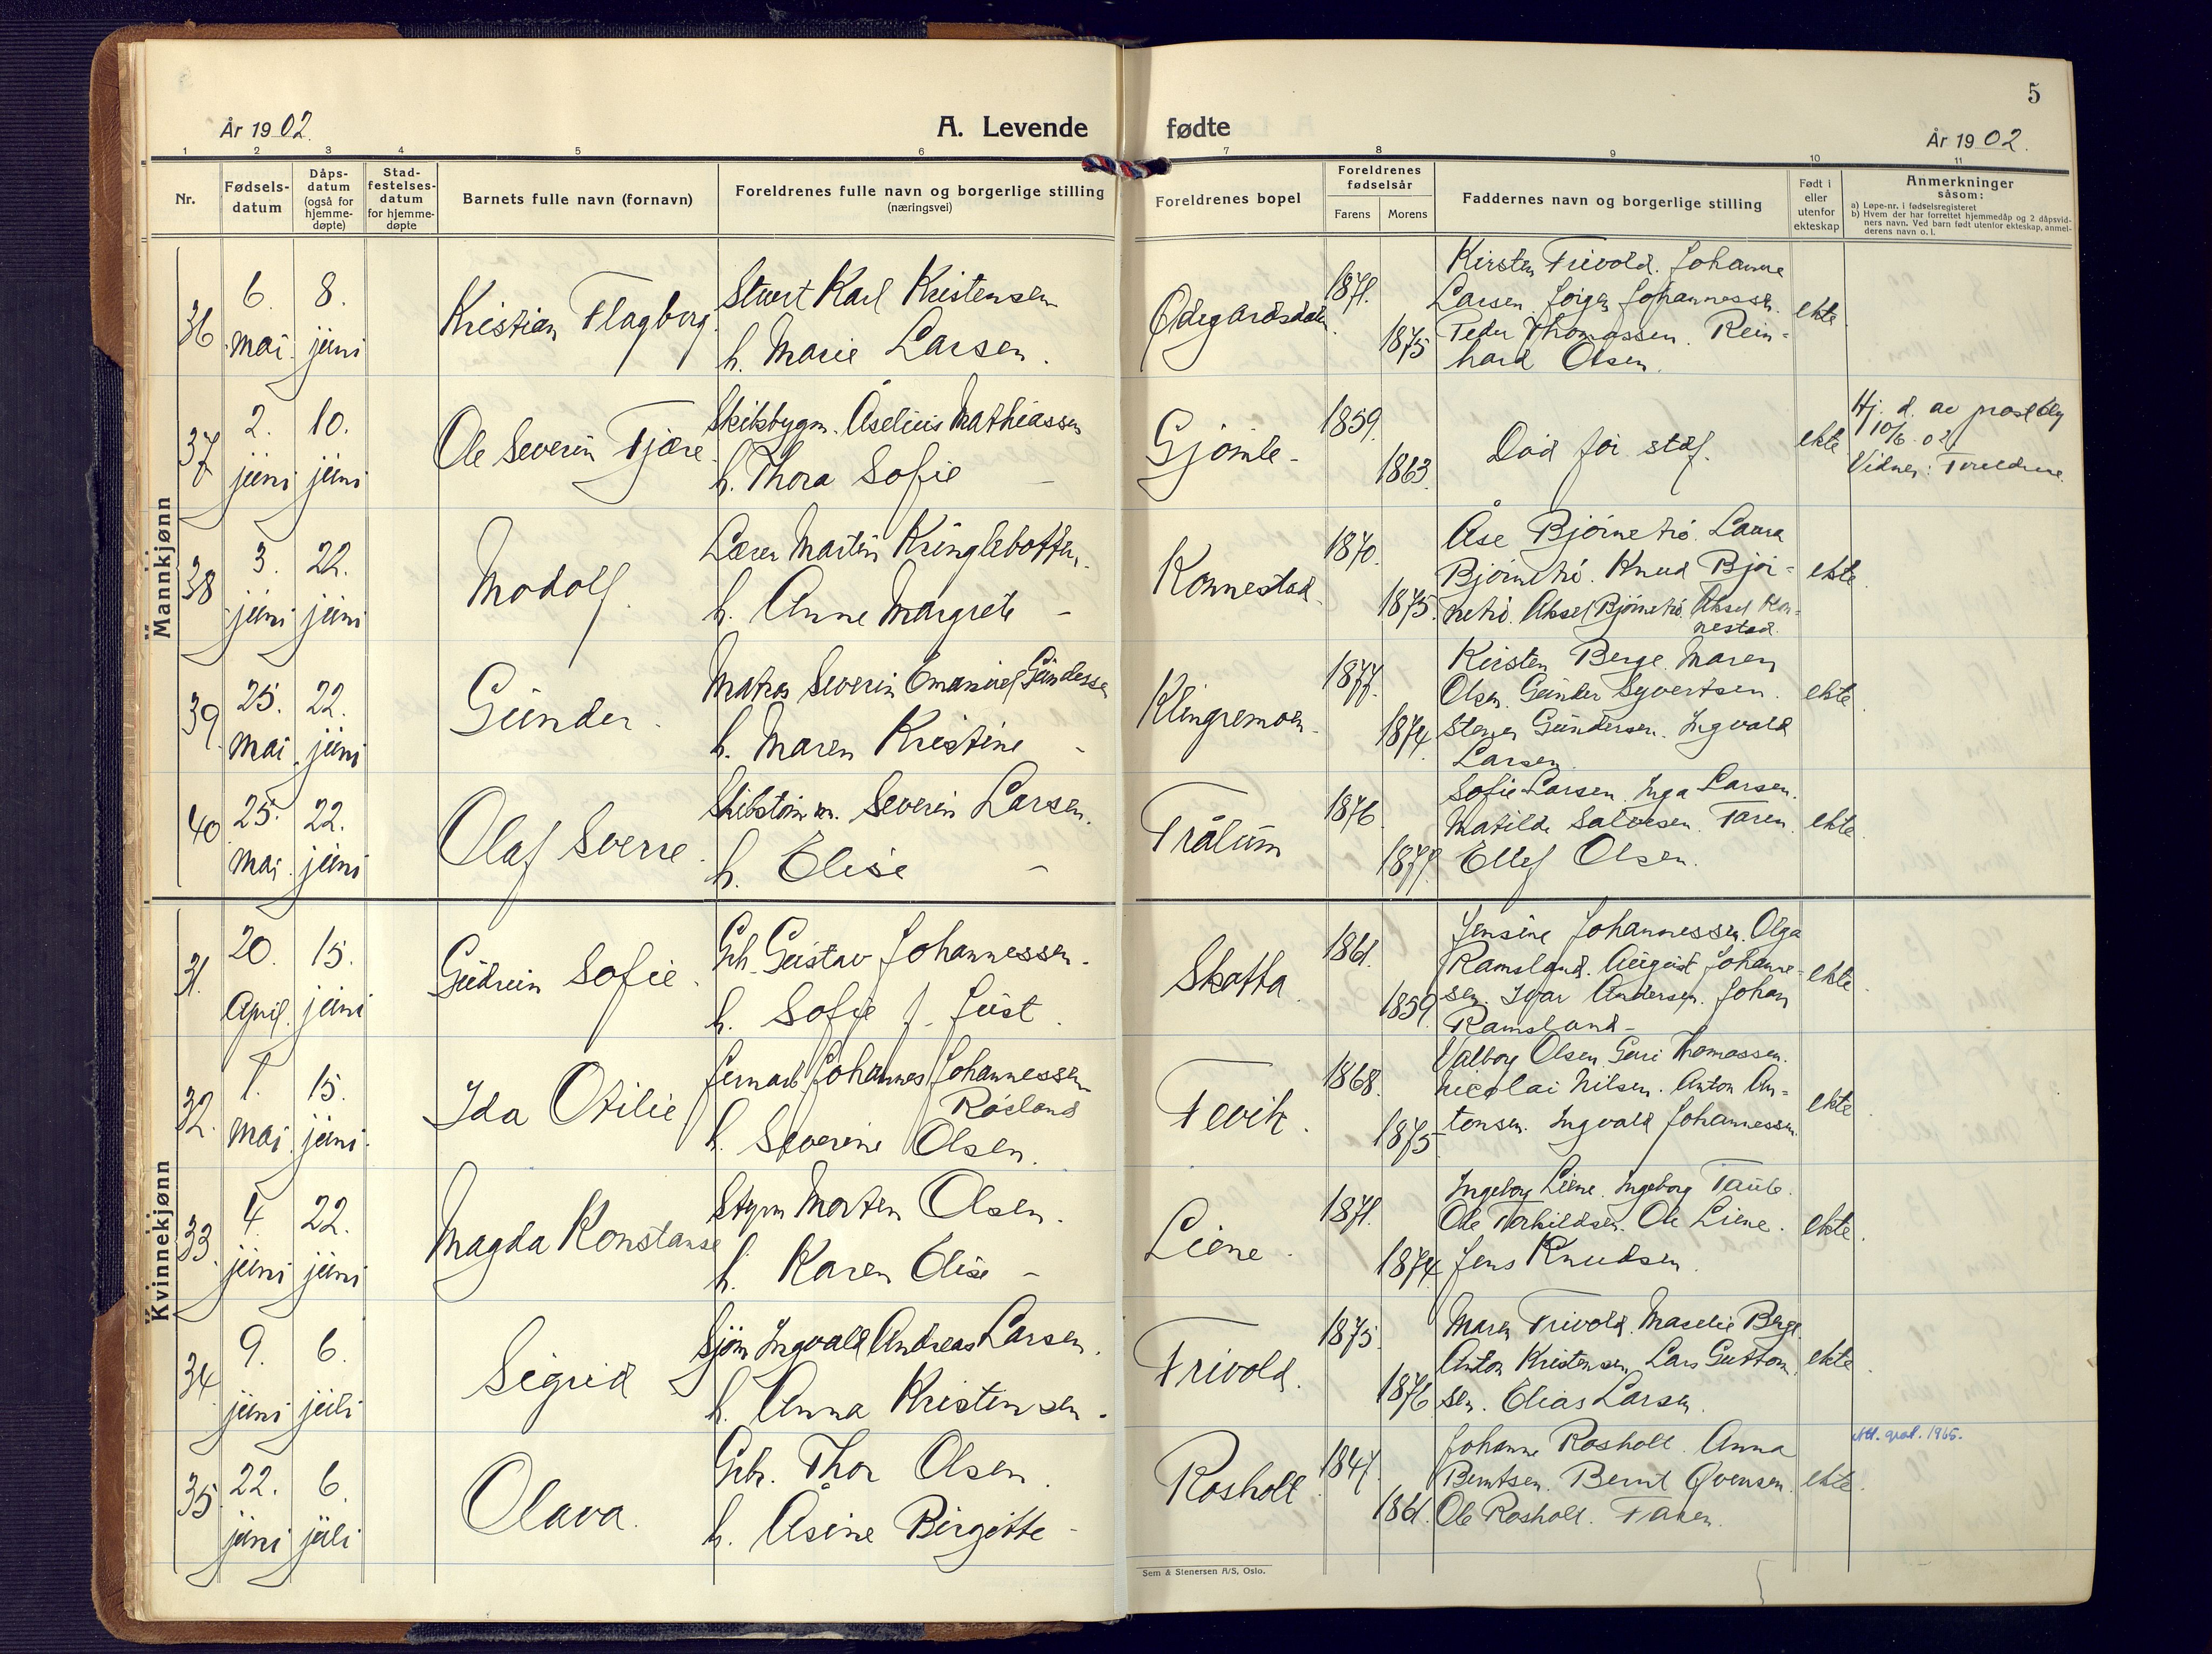 5
År 1902.
A. Levende fødte
År 1902.
1 2 3 4 5 6 7 8 9 10 11
Nr.
Fødsels-
datum
Dåps-
datum
(også for
hjemme-
døpte)
Stad-
festelses-
datum
for hjemme-
døpte
Barnets fulle navn (fornavn)
Foreldrenes fulle navn og borgerlige stilling
(næringsvei)
Foreldrenes bopel
Foreldrenes
fødselsår
Farens
Morens
Faddernes navn og borgerlige stilling
Født i
eller
utenfor
ekteskap
Anmerkninger
såsom:
a) Løpe-nr. i fødselsregisteret
b) Hvem der har forrettet hjemmedåp og 2 dåpsvid-
ners navn. Ved barn født utenfor ekteskap, anmel-
derens navn o. l.
Mannkjønn
36
6.
mai
8.
juni
Kristian Flagborg
Stuert Karl Kristensen
h. Marie Larsen.
Ødegårdsdalen
1871.
1875
Kirsten Frivold. Johanne
Larsen. Jørgen Johannessen.
Peder Thomassen. Rein-
hard Olsen.
ekte
37
2.
juni
10.
juni
Ole Severin Fjære
Skibsbygm. Aselius Mathiassen
h. Thora Sofie –
Gjømle
1859.
1863.
Død før stdf.
ekte
Hj. d. av prost Bly
10/6. 02.
Vidner: Foreldrene
38
3.
juni
22.
juni
Modolf.
Lærer Martin Kringlebotten.
h. Anne Margrete –
Konnestad.
1870.
1875.
Åse Bjørnetrø. Laura
Bjørnetrø. Knud Bjør-
netrø. Aksel Bjørnetrø. Aksel Kon-
nestad.
ekte.
39
25.
mai
22.
juni
Gunder.
Matros Severin Emanuel Gundersen
h. Maren Kristine –
Klingremoen.
1877.
1874
Kirsten Berge. Maren
Olsen. Gunder Syvertsen.
Stener Gundersen. Ingvald
Larsen.
ekte.
40
25.
mai
22.
juni
Olaf Sverre.
Skibstøm.m. Severin Larsen.
h. Elise –
Trålum
1876
1877
Sofie Larsen. Inga Larsen.
Matilde Salvesen. Faren.
Ellef Olsen.
ekte
Kvinnekjønn
31.
20.
April.
15.
juni
Gudrun Sofie.
Gbr. Gustav Johannessen.
h. Sofie f. Just.
Skatta.
1861.
1859.
Jensine Johannessen. Olga
Ramsland. August Johanne-
sen. Ivar Andersen. Johan
Ramsland.
ekte.
32.
1.
mai
15.
juni.
Ida Otilie
Jernarb. Johannes Johannessen
Røsland
h. Severine Olsen.
Fevik.
1868.
1875
Valborg Olsen. Guri Thomassen.
Nicolai Nilsen. Anton An-
tonsen. Ingvald Johannessen.
ekte.
33.
4.
juni
22.
juni
Magda Konstanse
Styrm Morten Olsen.
h. Karen Elise –
Liene.
1871.
1874
Ingeborg Liene. Ingeborg Taule.
Ole Torkildsen. Ole Liene.
Jens Knudsen.
ekte.
34
9.
juni
6.
juli
Sigrid
Sjøm Ingvald Andreas Larsen.
h. Anna Kristensen.
Frivold.
1875.
1876
Maren Frivold. Maselie Berge
Anton Kristensen. Lars Guttorm-
sen. Elias Larsen.
ekte.
35
22.
juni
6.
juli
Olava.
Gbr. Thor Olsen.
h. Åsine Birgitte –
Rosholt
1847.
1861.
Johanne Rosholt. Anna
Berntsen. Bernt Evensen.
Ole Rosholt. Faren.
ekte.
1965.
Sem & Stenersen A/S, Oslo.